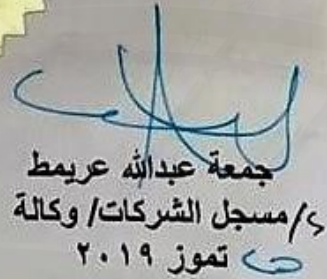 جمعة عبدالله عريمط
ع/مسجل الشركات/ وكالة
تموز ٢٠١٩